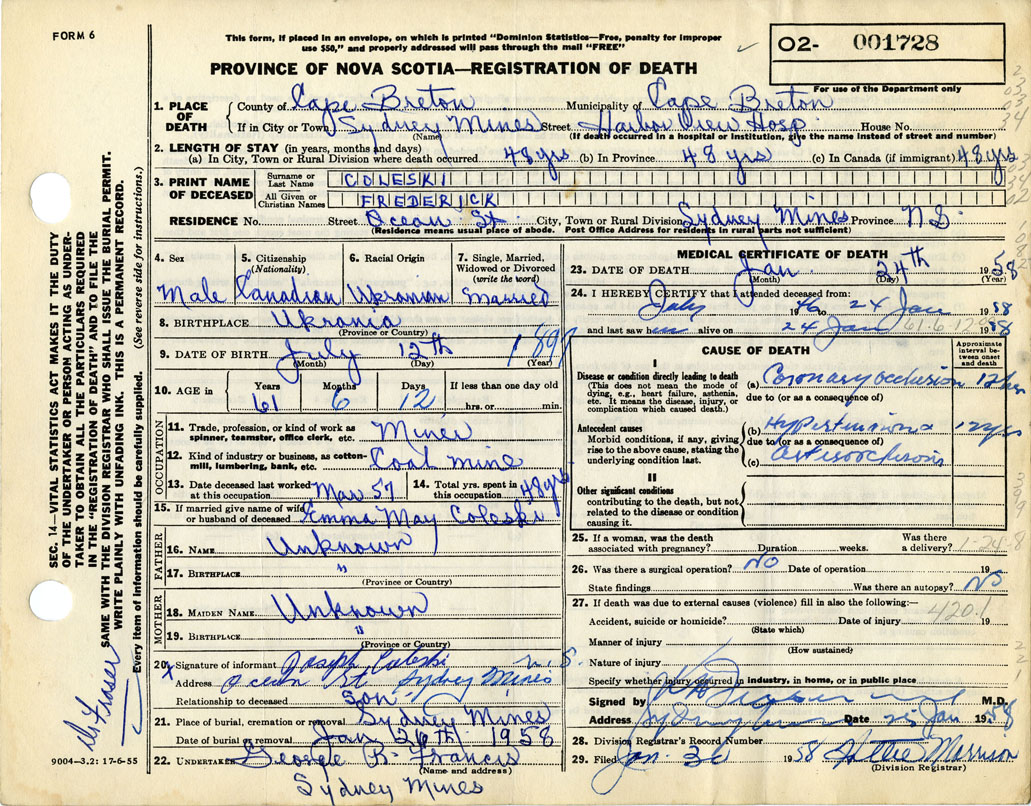 FORM 6
This form, if placed in an envelope, on which is printed "Dominion Statistics—Free, penalty for improper
use $50," and properly addressed will pass through the mail "FREE"
O2- 001728
For use of the Department only
PROVINCE OF NOVA SCOTIA—REGISTRATION OF DEATH
1. PLACE OF DEATH County of Cape Breton Municipality of Cape Breton
If in City or Town Sydney Mines Street Harbor View Hosp. House No.
(Name) (If death occurred in a hospital or institution, give the name instead of street and number)
2. LENGTH OF STAY (in years, months and days)
(a) In City, Town or Rural Division where death occurred 48 yrs (b) In Province 48 yrs (c) In Canada (if immigrant) 48 yrs
3. PRINT NAME OF DECEASED Surname or Last Name COLESKI
All Given or Christian Names FREDERICK
RESIDENCE No. Street Ocean St. City, Town or Rural Division Sydney Mines Province N.S.
(Residence means usual place of abode. Post Office Address for residents in rural parts not sufficient)
4. Sex Male
5. Citizenship (Nationality) Canadian
6. Racial Origin Ukranian
7. Single, Married, Widowed or Divorced (write the word) Married
8. BIRTHPLACE Ukrania
(Province or Country)
9. DATE OF BIRTH July 12th
(Month) (Day) (Year)
10. AGE in Years 61 Months 6 Days 12 If less than one day old
hrs. or min.
OCCUPATION
11. Trade, profession, or kind of work as spinner, teamster, office clerk, etc. Miner
12. Kind of industry or business, as cotton-mill, lumbering, bank, etc. Coal mine
13. Date deceased last worked at this occupation Mar 57
14. Total yrs. spent in this occupation 48 yrs
15. If married give name of wife or husband of deceased Emma May Coleski
FATHER
16. NAME Unknown
17. BIRTHPLACE "
(Province or Country)
MOTHER
18. MAIDEN NAME Unknown
19. BIRTHPLACE "
(Province or Country)
20. X Signature of informant Joseph Coleski
Address Ocean St. Sydney Mines N.S.
Relationship to deceased Son
21. Place of burial, cremation or removal Sydney Mines
Date of burial or removal Jan 26th 1958
22. UNDERTAKER George B. Francis
(Name and address)
Sydney Mines
MEDICAL CERTIFICATE OF DEATH
23. DATE OF DEATH Jan. 24th 1958
(Month) (Day) (Year)
24. I HEREBY CERTIFY that I attended deceased from:
July 1946 to 24 Jan 1958
and last saw him alive on 24 Jan 1958
61-6-12
CAUSE OF DEATH
Approximate interval between onset and death
I
Disease or condition directly leading to death
(This does not mean the mode of dying, e.g., heart failure, asthenia, etc. It means the disease, injury, or complication which caused death.)
(a) Coronary Occlusion 12 hrs
due to (or as a consequence of)
Antecedent causes
Morbid conditions, if any, giving rise to the above cause, stating the underlying condition last.
(b) Hypertension
due to (or as a consequence of)
(c)
II
Other significant conditions
contributing to the death, but not related to the disease or condition causing it.
25. If a woman, was the death associated with pregnancy? Duration weeks. Was there a delivery?
1-24-8
26. Was there a surgical operation? NO Date of operation 19
State findings Was there an autopsy? No
27. If death was due to external causes (violence) fill in also the following:—
420.1
Accident, suicide or homicide? Date of injury 19
(State which)
Manner of injury
(How sustained)
Nature of injury
Specify whether injury occurred in industry, in home, or in public place
Signed by M.D.
Address Date 25 Jan 1958
28. Division Registrar's Record Number
29. Filed Jan. 1958 Hattie Morrison
(Division Registrar)
SEC. 14—VITAL STATISTICS ACT MAKES IT THE DUTY
OF THE UNDERTAKER OR PERSON ACTING AS UNDER-
TAKER TO OBTAIN ALL THE PARTICULARS REQUIRED
IN THE "REGISTRATION OF DEATH" AND TO FILE THE
SAME WITH THE DIVISION REGISTRAR WHO SHALL ISSUE THE BURIAL PERMIT.
WRITE PLAINLY WITH UNFADING INK. THIS IS A PERMANENT RECORD.
Every item of information should be carefully supplied. (See reverse side for instructions.)
Dr. Fraser
9004—3.2: 17-6-55